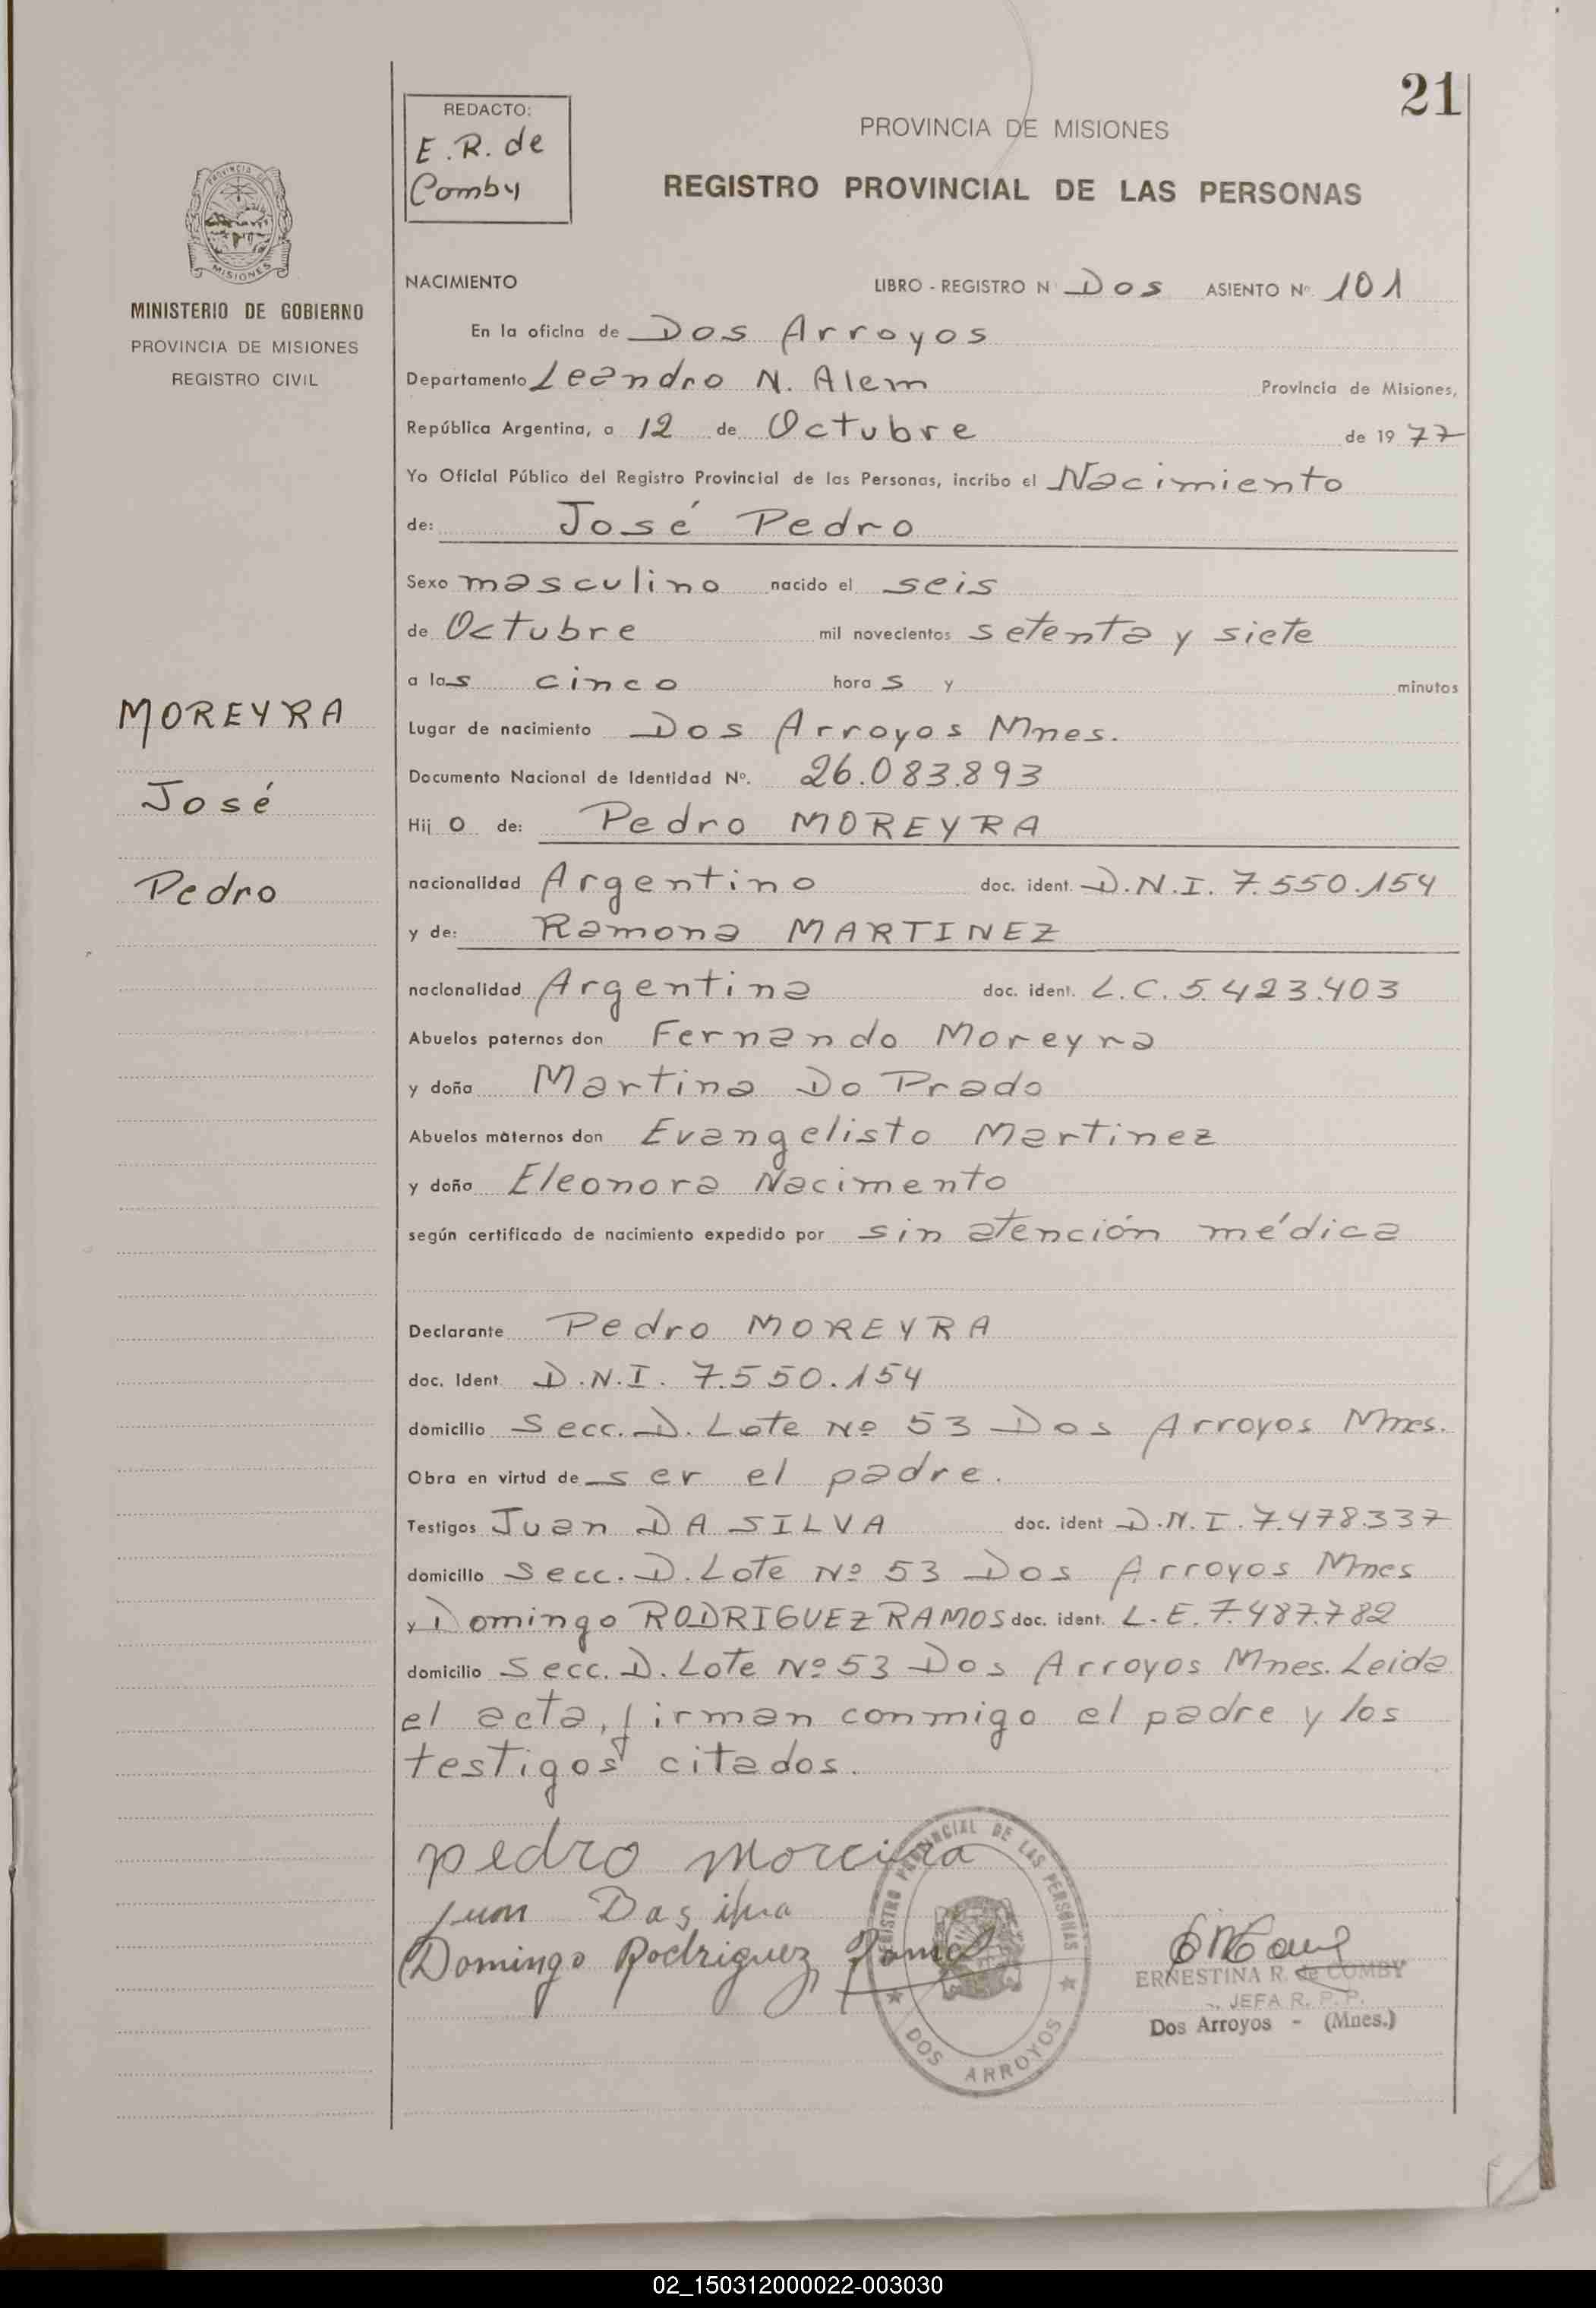 21
REDACTO:
E.R. de
Comby
PROVINCIA DE MISIONES
REGISTRO PROVINCIAL DE LAS PERSONAS
PROVINCIA DE
MISIONES
MINISTERIO DE GOBIERNO
PROVINCIA DE MISIONES
REGISTRO CIVIL
MOREYRA
José
Pedro
NACIMIENTO LIBRO - REGISTRO N Dos ASIENTO Nº. 101
En la oficina de Dos Arroyos
Departamento Leandro N. Alem Provincia de Misiones,
República Argentina, a 12 de Octubre de 19 77
Yo Oficial Público del Registro Provincial de las Personas, incribo el Nacimiento
de: José Pedro
Sexo masculino nacido el seis
de Octubre mil novecientos setenta y siete
a las cinco horas y minutos
Lugar de nacimiento Dos Arroyos Mnes.
Documento Nacional de Identidad Nº. 26.083.893
Hijo de: Pedro MOREYRA
nacionalidad Argentino doc. ident. D.N.I. 7.550.154
y de: Ramona MARTINEZ
nacionalidad Argentina doc. ident. L.C. 5.423.403
Abuelos paternos don Fernando Moreyra
y doña Martina Do Prado
Abuelos maternos don Evangelisto Martinez
y doña Eleonora Nacimento
según certificado de nacimiento expedido por sin atención médica
Declarante Pedro MOREYRA
doc. Ident. D.N.I. 7.550.154
domicilio Secc. D. Lote Nº 53 Dos Arroyos Mnes.
Obra en virtud de ser el padre.
Testigos Juan DA SILVA doc. ident D.N.I. 7.478.337
domicilio Secc. D. Lote Nº 53 Dos Arroyos Mnes
y Domingo RODRIGUEZ RAMOS doc. ident. L.E. 7.487.782
domicilio Secc. D. Lote Nº 53 Dos Arroyos Mnes. Leida
el acta, firman conmigo el padre y los
testigos citados.
pedro morciira
juan Dasilva
Domingo Rodriguez Ramos
REGISTRO PROVINCIAL DE LAS PERSONAS
DOS ARROYOS
ERNESTINA R. de COMBY
JEFA R. P. P.
Dos Arroyos - (Mnes.)
02_150312000022-003030